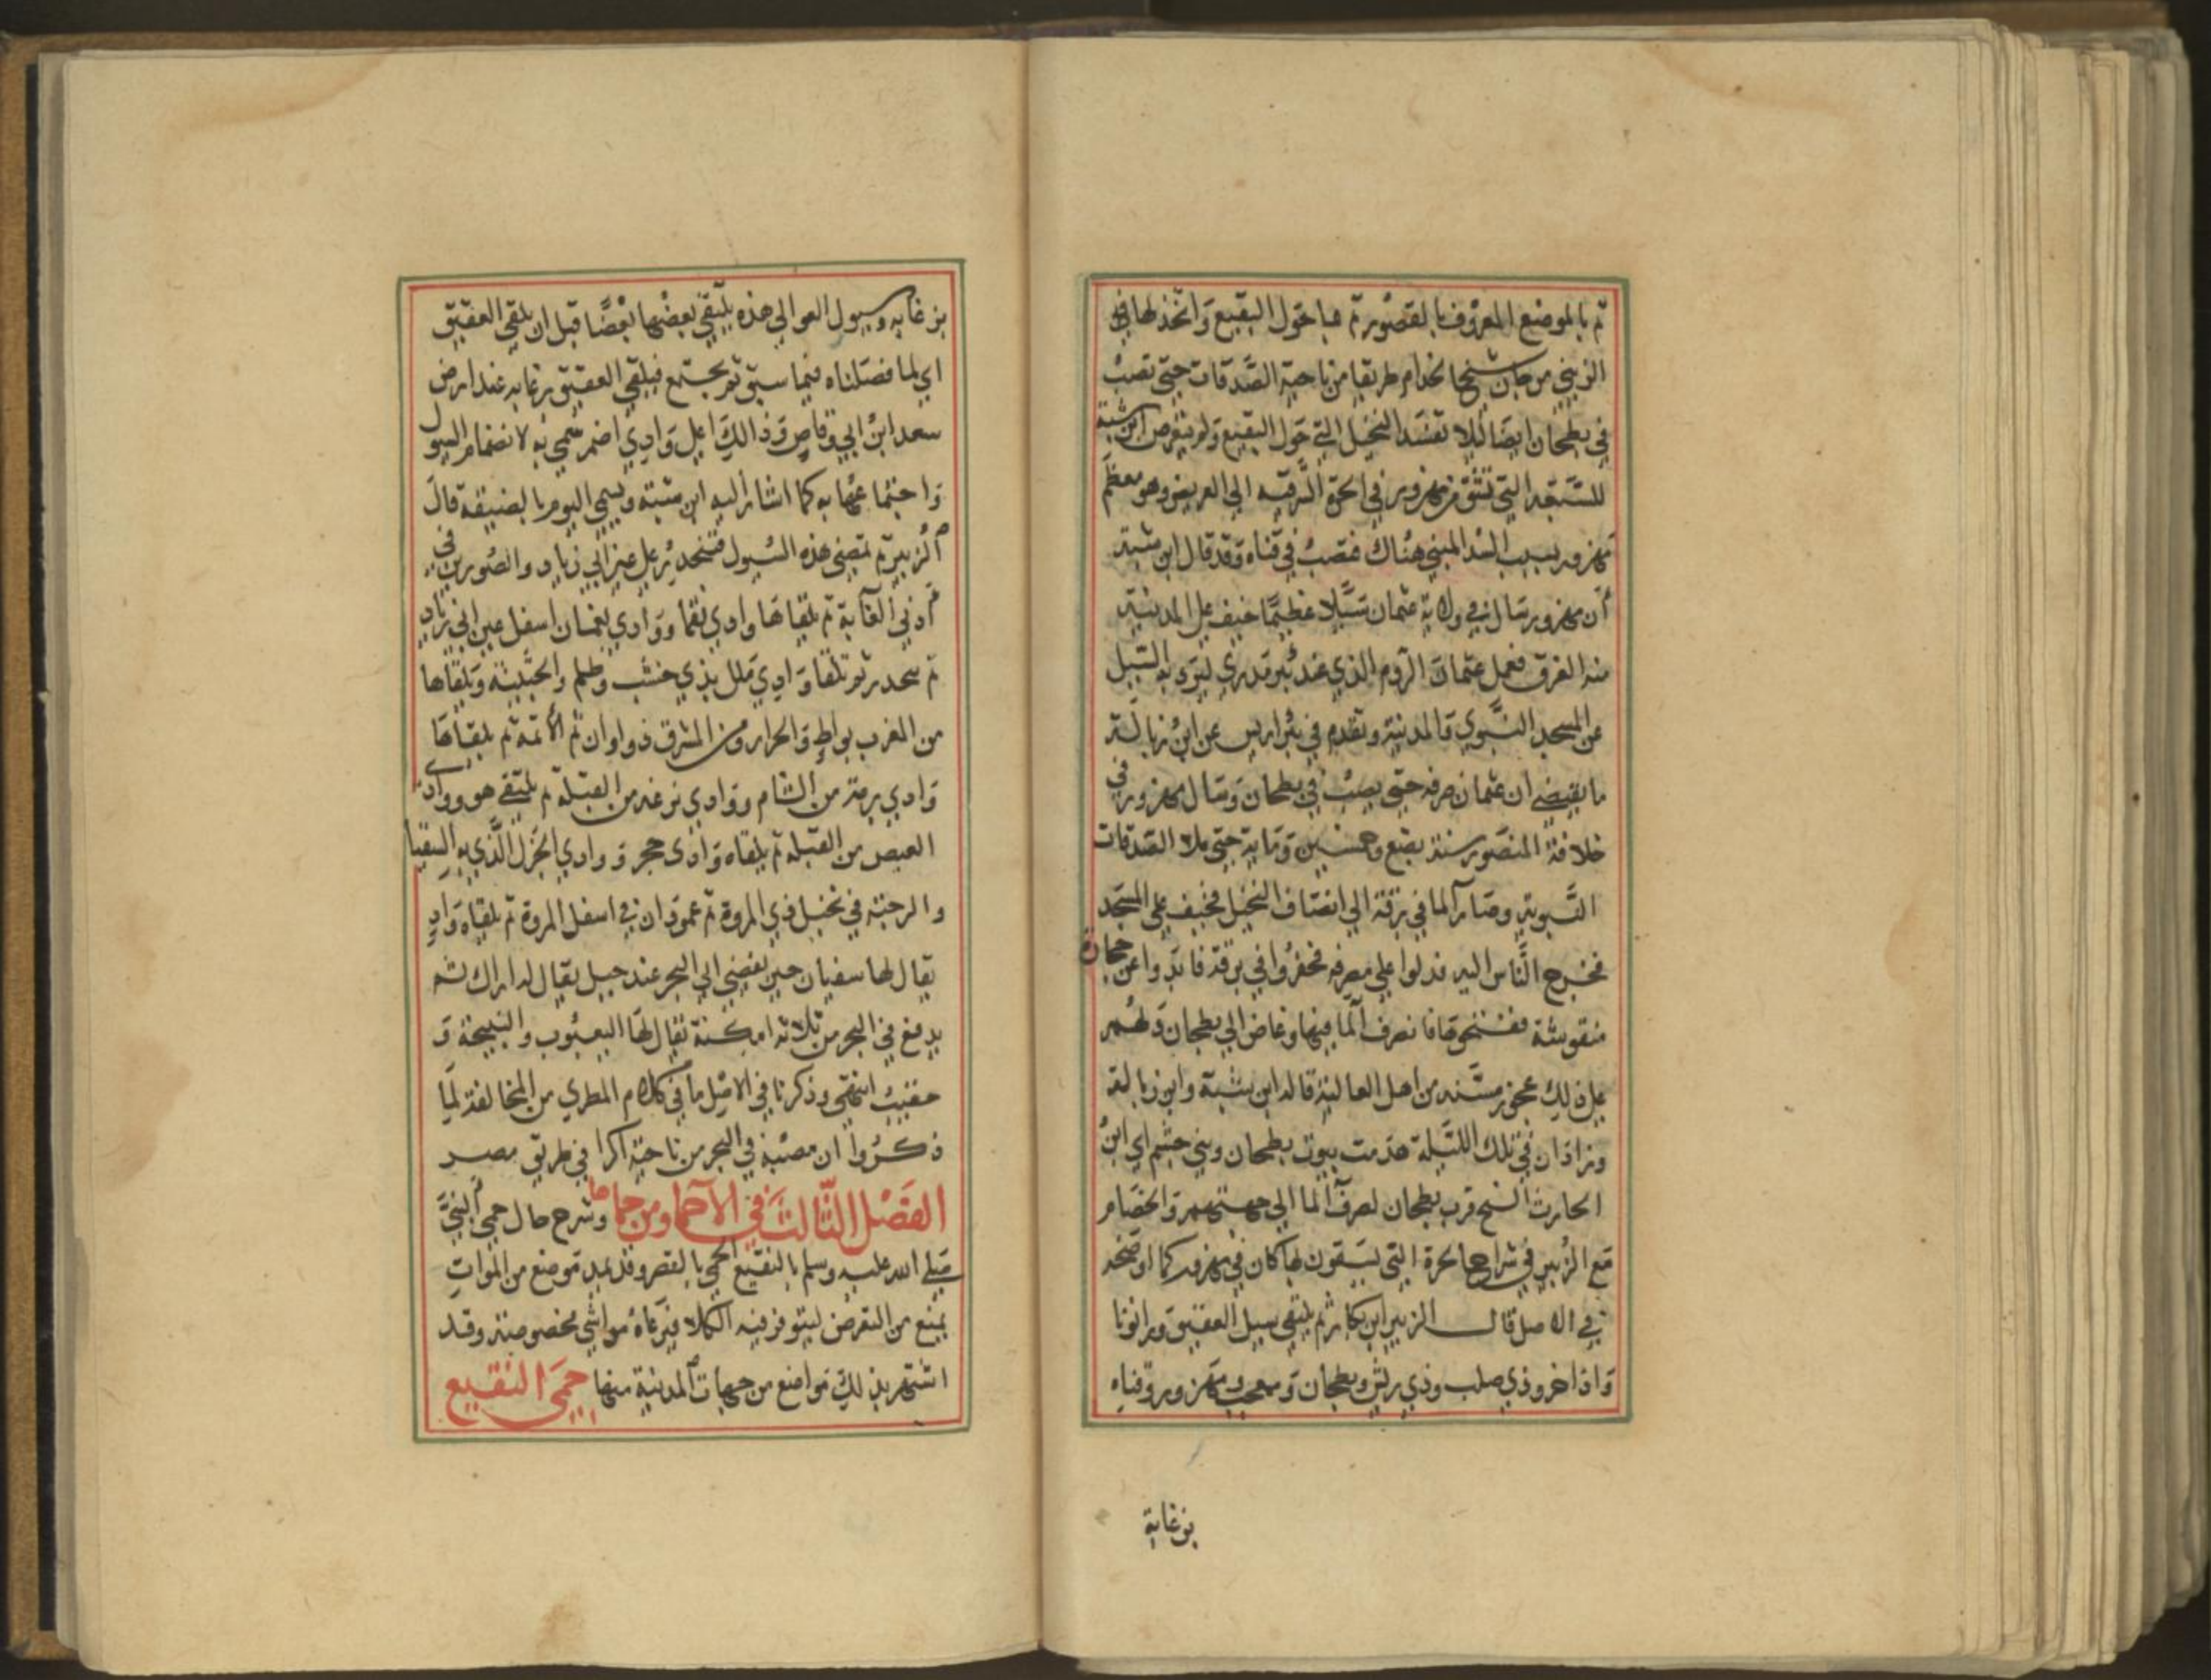 ثم بالموضع المعروف بالقصور ثم هبا حول البقيع واتخذ لها في
الزيني مرجان شيخ الخدام طريقا من ناحية الصدقات حتى تصب
في بطحان ايضا ليلا تفسد النخيل التي حول البقيع ولم يتعرض ابن شبة
للشعبة التي تشق من مهزور في الحرة الشرقية الى العريض وهو معظم
مهزور بسبب السد المبني هناك فتصب في قناه وقد قال ابن شبة
ان مهزور سال في ولاية عثمان سيلا عظيما خيف على المدينة
منه الغرق فعمل عثمان الردم الذي عند بير مدري ليرد به السيل
عن المسجد النبوي والمدينة وتقدم في بئر اريس عن ابن زبالة
ما يقتضي ان عثمان صرفه حتى يصب في بطحان وسال مهزور في
خلافة المنصور سنة بضع وخمسين وماية حتى ملا الصدقات
النبوية وصار الما في برقة الى انصاف النخيل فخيف على المسجد
فخرج الناس اليه فدلوا على مصرفه فحفروا في برقة فابدوا عن حجارة
منقوشة ففتحوها فانصرف الما فيها وغاض الى بطحان دلهم
على ذلك عجوز مسنه من اهل العالية قاله ابن شبة وابن زبالة
وزاد ان في تلك الليلة هدمت بيوت بطحان وبني جشم اي ابن
الحارث السنح قرب بطحان لصرف الما الى جهتهم والخصام
مع الزبير في شراج الحرة التي يسقون بها كان في مهزور كما اوضحه
في الاصل قال الزبير ابن بكار ثم يلتقي سيل العقيق ورانونا
واذاخر وذي صلب وذي ريش وبطحان ومعجب ومهزور وقناه
بزغابة
بزغابه وسيول العوالي هذه يلتقي بعضها بعضا قبل ان يلقى العقيق
اي لما فصلناه فيما سبق ثم يجتمع فيلقى العقيق بزغابه عند ارض
سعد ابن ابي وقاص وذالك اعلى وادي اضم سمي به لانضمام السيول
واجتماعها به كما اشار اليه ابن شبته ويسمى اليوم بالضيقة قال
الزبير ثم تمضي هذه السيول فتنحدر على عين ابي زياد والصورين في
ادنى الغابة ثم تلقاها وادي نقما ووادي نعمان اسفل عين ابي زياد
ثم تنحدر ثم تلقا وادي ملل بذي خشب وظلم والجنينة ويلقاها
من المغرب بواط والحرار ومن المشرق ذو اوان ثم الاتمه ثم يلقاها
وادي برمة من الشام ووادي ترعة من القبلة ثم يلتقي هو ووادي
العيص من القبله ثم يلقاه وادي حجر ووادي الجزل الذي به السقيا
والرحبة في نخيل ذي المروة ثم عمودان في اسفل المروة ثم يلقاه واد
يقال لها سفيان حين يفضي الى البحر عند جبل يقال له اراك ثم
يدفع في البحر من ثلاثه امكنة يقال لها اليعبوب والنبيجة و
حقيب انتهى وذكرنا في الاصل ما في كلام المطري من المخالفة لما
ذكروا ان مصبه في البحر من ناحية اكرا في طريق مصر
الفصل الثالث في الاحما ومن حماها وشرح حال حمى النبي
صلى الله عليه وسلم بالنقيع الحمى بالقصر وقد يمد موضع من الموات
يمنع من التعرض ليتوفر فيه الكلا فترعاه مواشي مخصوصة وقد
اشتهر بذلك مواضع من جهات المدينة منها حمى النقيع